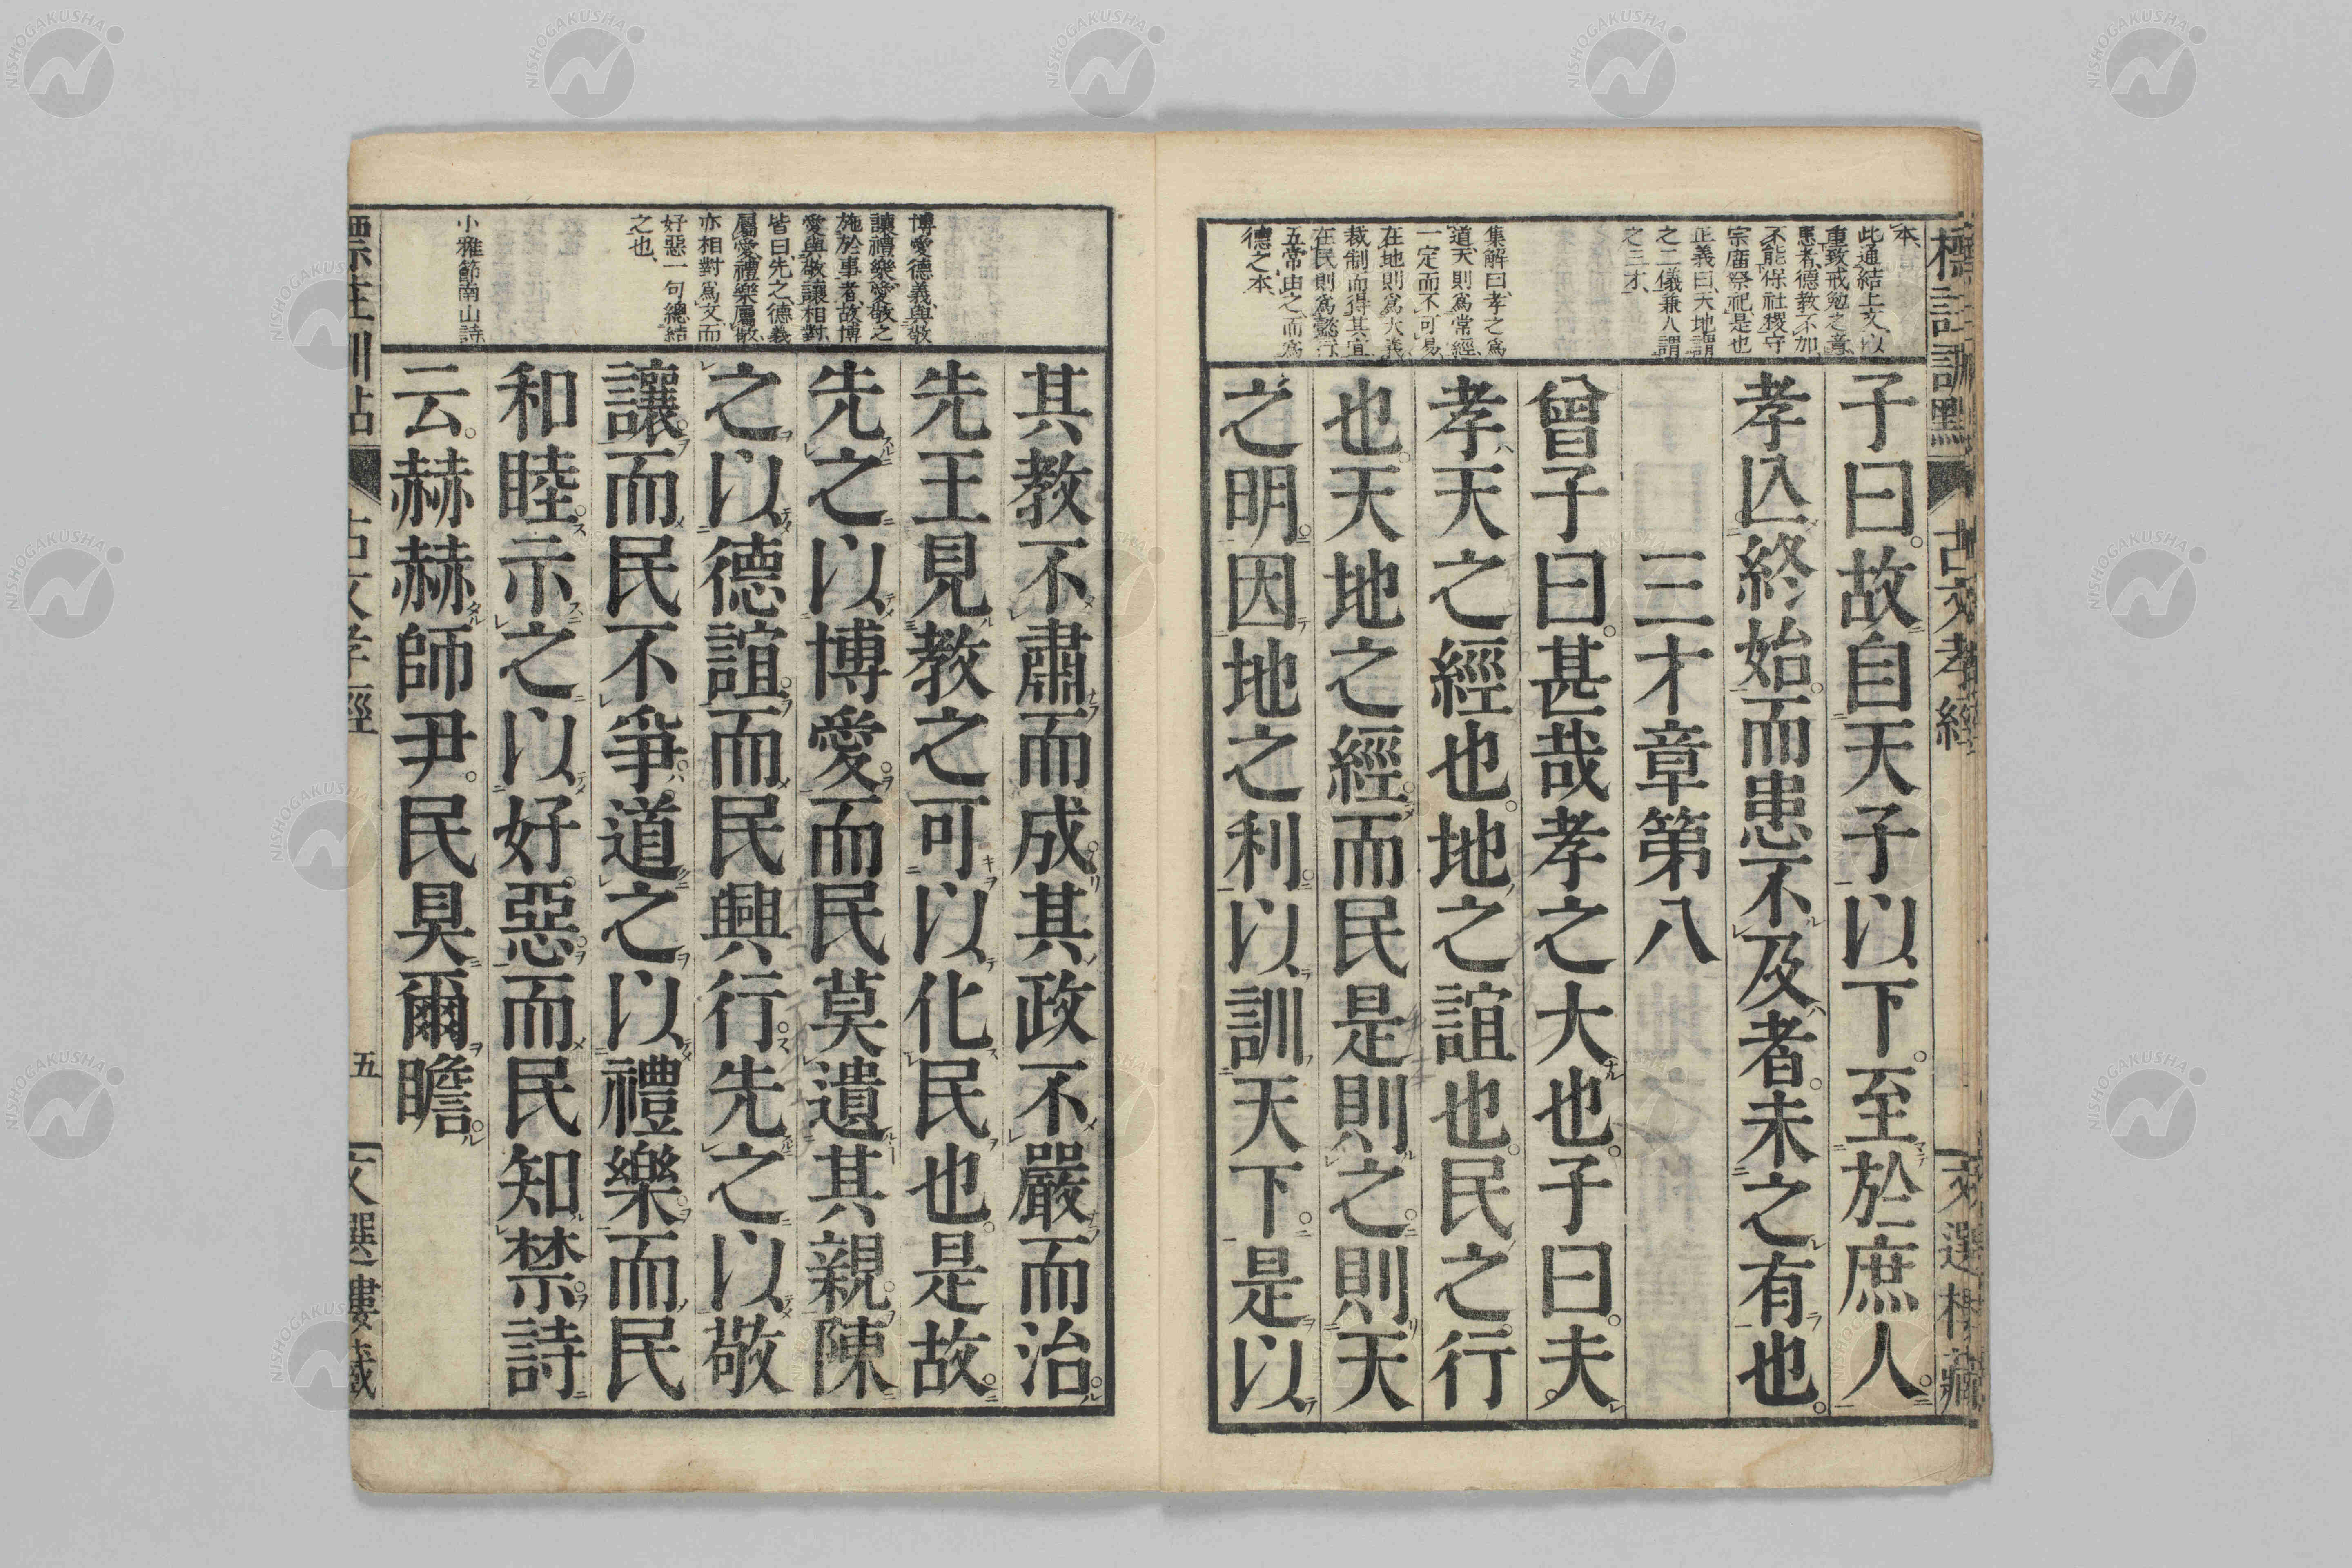 標註訓點
古文孝經
文選樓藏
本、
此通結上文、以
重致戒勉之意、
患者德教不加、
不能保社稷守
宗庿祭祀是也
正義曰、天地謂
之二儀兼人謂
之三才、
集解曰、孝之爲
道天則爲常經、
一定而不可易、
在地則爲大義
裁制而得其宜
在民則爲懿行
五常由之而爲
德之本、
子曰。故自天子以下。至於庶人
孝亾終始。而患不及者。未之有也。
三才章第八
曾子曰。甚哉孝之大也。子曰。夫
孝天之經也。地之誼也。民之行
也。天地之經。而民是則之。則天
之明。因地之利。以訓天下。是以
博愛、德義、與敬
讓禮樂、愛敬之
施於事者、故博
愛與敬讓相對、
皆曰、先之、德義
屬愛、禮樂屬敬、
亦相對爲文、而
好惡一句總結
之也、
小雅節南山詩
其教不肅而成。其政不嚴而治。
先王見教之可以化民也。是故。
先之以博愛。而民莫遺其親。陳
之以德誼。而民興行。先之以敬
讓。而民不爭。道之以禮樂。而民
和睦。示之以好惡。而民知禁。詩
云。赫赫師尹。民具爾瞻。
標註訓點
古文孝經
五
文選樓藏